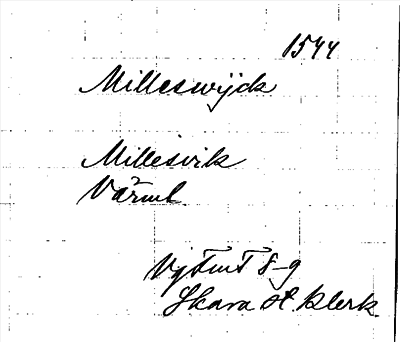 1544
Milleswijck
Millesvik
Värml.
Vg Tmt 8-9
Skara st. klerk.